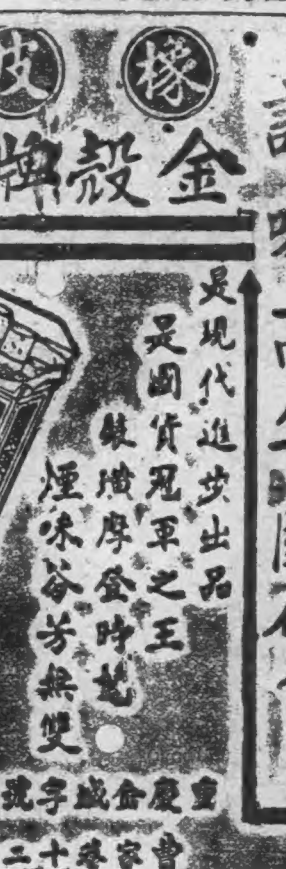 橡皮
金殼牌
是現代進步出品
是國貨冠軍之王
裝璜摩登時髦
煙味谷芳無雙
重慶金字號
曾家巷十二